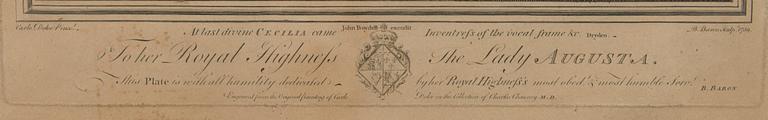 Carlo Dolce Pinxt. John Boydell excudit B. Baron Sculp. 1750.
At last divine CECILIA came Inventress of the vocal frame &c. Dryden.
To her Royal Highness The Lady AUGUSTA.
This Plate is with all humility dedicated by her Royal Highness's most obedt. & most humble Servt.
B. BARON
Engraved from the Original painting of Carlo Dolce in the Collection of Charles Chauncy M.D.